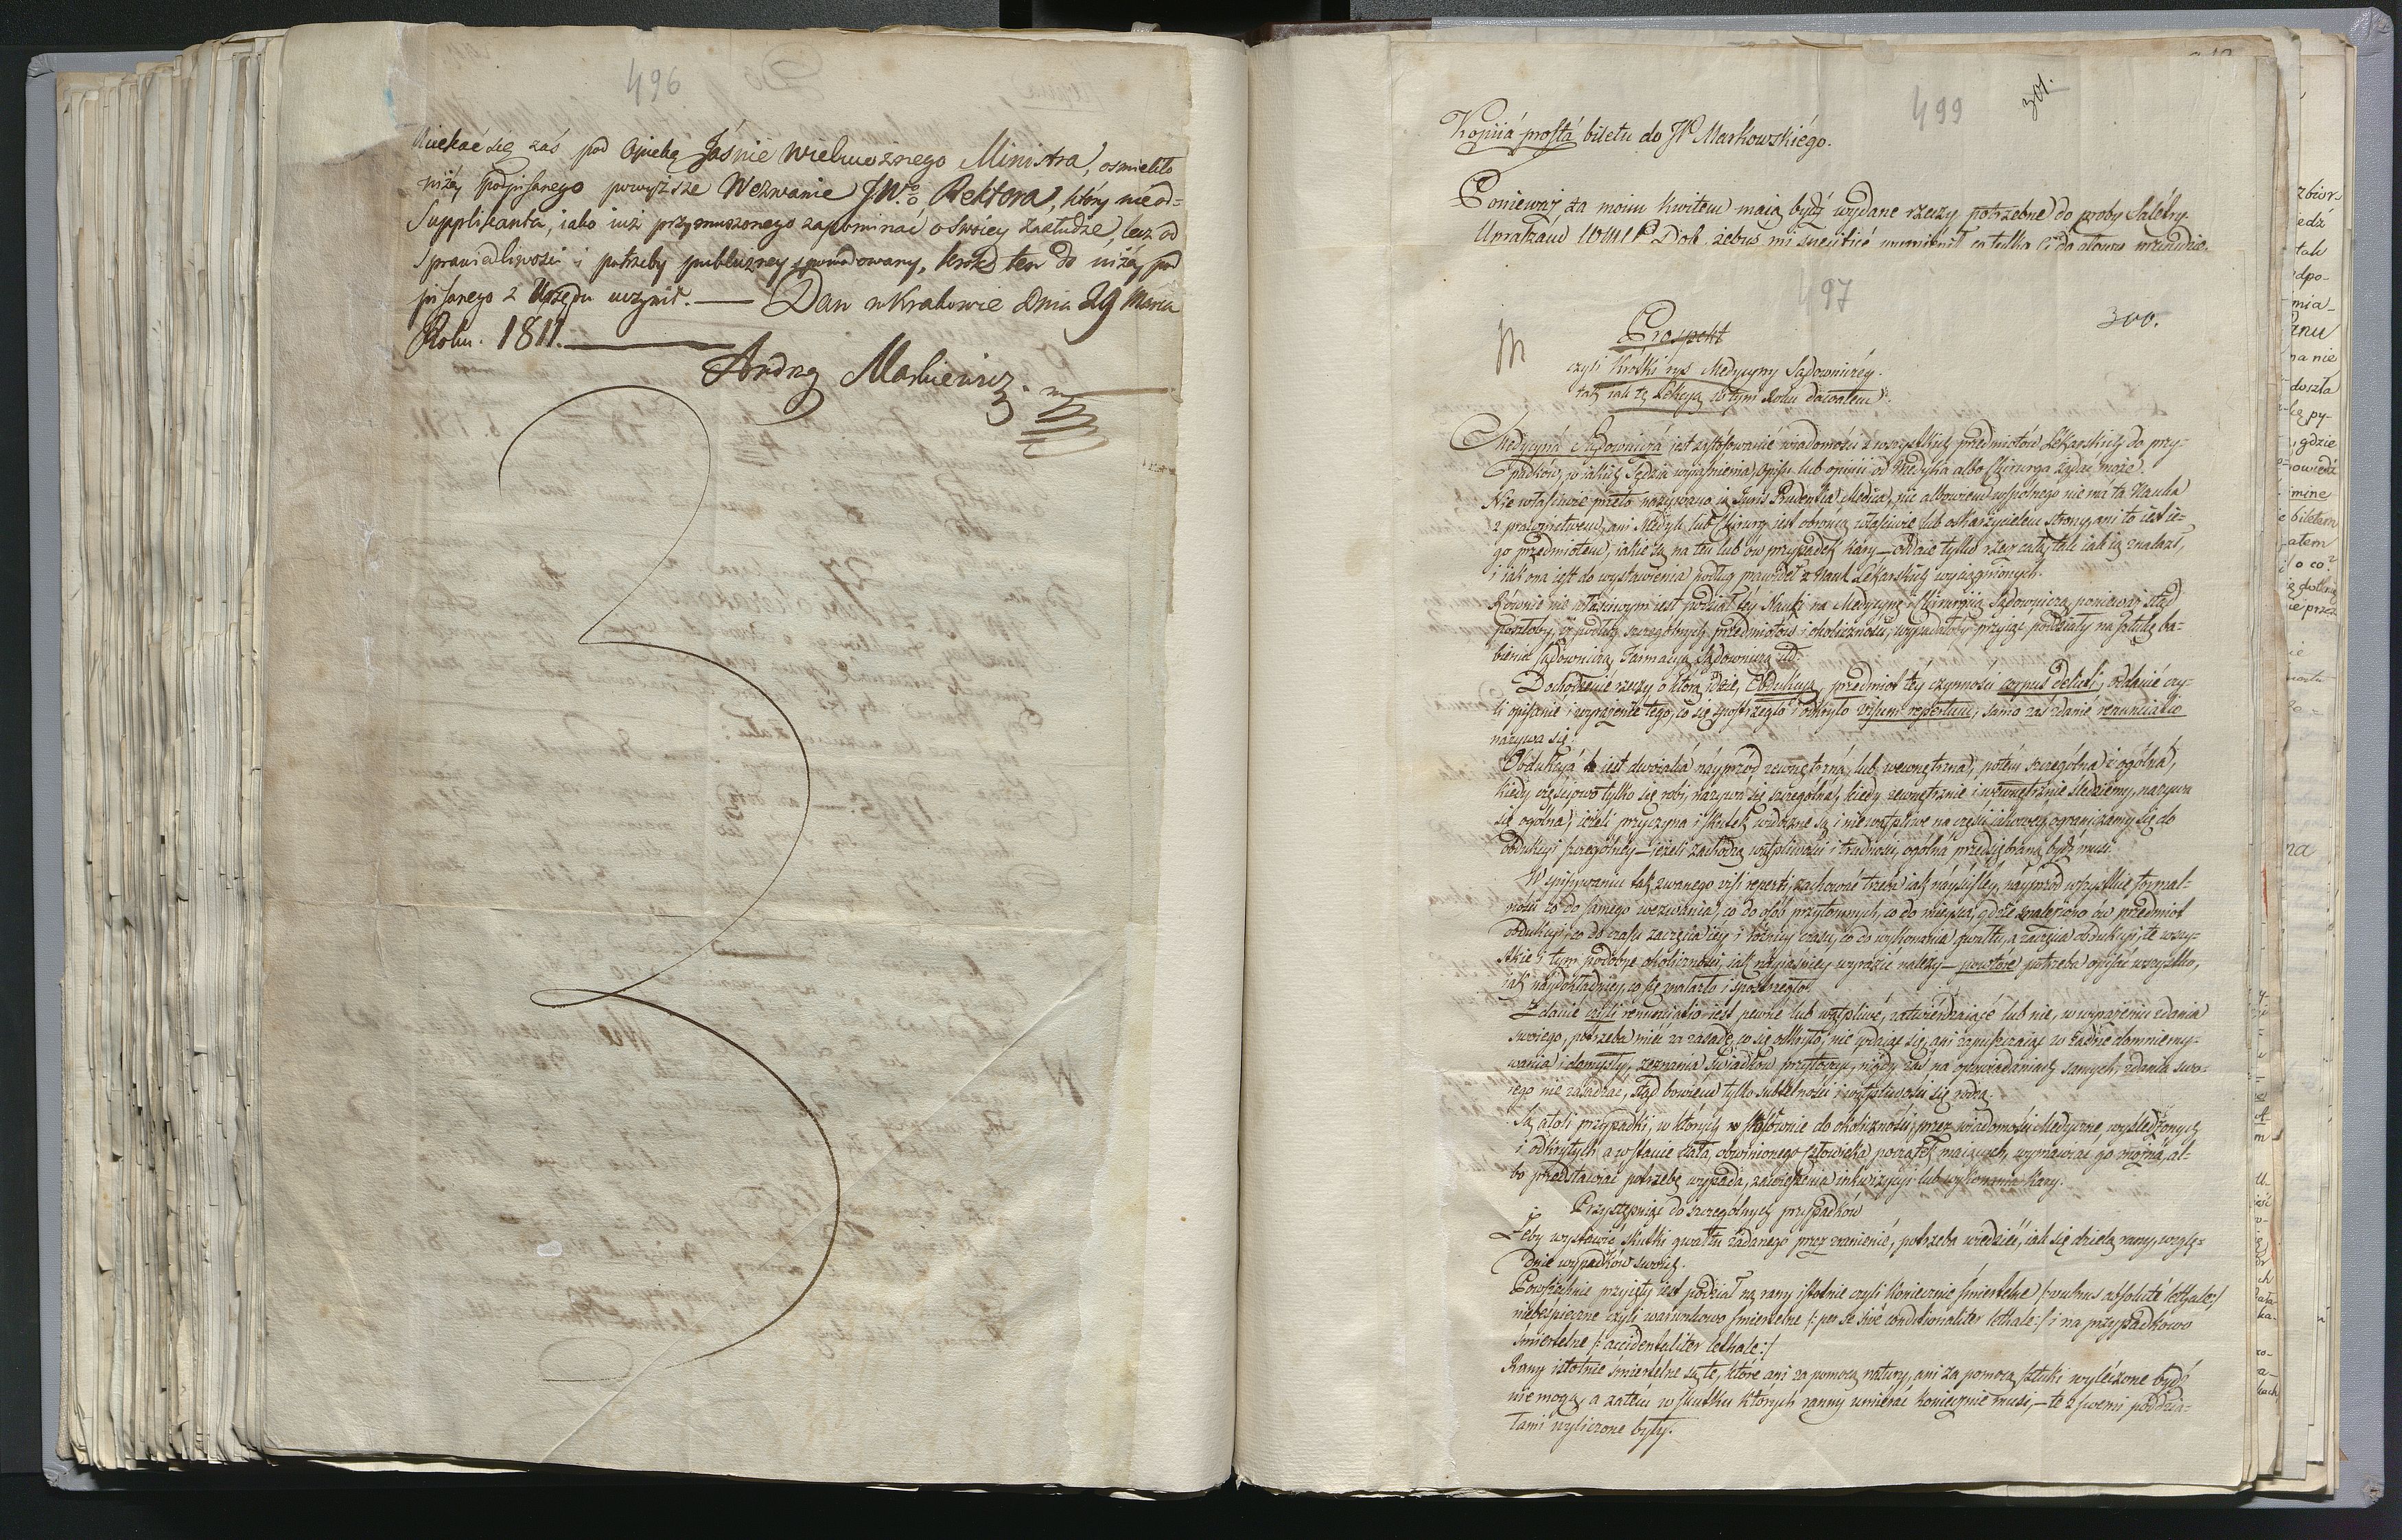 496
Uciekać się zaś pod Opiekę Jaśnie Wielmożnego Ministra, ośmieliło
niżéy podpisanego powyższe Wezwanie JWgo Rektora, który nie od
Supplikanta, iako iuż przymuszonego zapominać o swoiey zasłudze, lecz od
Sprawiedliwości i potrzeby publiczney spowodowany, krok ten do niżéy pod
pisanego z Urzędu uczynił. — Dan w Krakowie Dnia 29 Marca
Roku. 1811.
Andrzy Markiewicz.
499
301.
Kopiiá prostá biletu do JP Markowskiégo.
Poniewaz za moim kwitem maią bydź wydane rzeczy potrzebne do proby Salétry
Upraszam WMP Dob. żebyś mi
497
300.
Prospekt
czyli Krótki rys Medycyny Sądowniczéy.
tak iak tę Lekcyą w tym Roku dawałem.
Medycyná Sądowniczá jest zastósowanié wiadomości z wszystkich przedmiotów Lékarskich do przy-
padków, w iakich Sędzia wyiaśnienia, opisu lub opinii od Medyka albo Chirurga żądać może.
Nie właściwie przeto nazywano ią Juris Prudentia Medica, nic albowiem wspólnego nie má ta Nauka
z prawnictwem, ani Medyk lub Chirurg iest obrońcą właściwie lub oskarżycielem strony, ani to iest ie-
go przedmiotem, iakie są na ten lub ów przypadek kary — oddaie tylko rzecz całą tak iak ią znalazł,
i iak ona iest do wystawienia podług prawideł z Nauk Lékarskich wyciągnionych.
Równie nie właściwym iest podział téy Nauki na Medycynę i Chirurgiią Sądowniczą, ponieważ stąd
poszłoby, iż podług szczególnych przedmiotów i okoliczności, wypadałoby przyiąć podziały na sztukę ba-
bienia sądowniczą, Farmacyą Sądowniczą itd.
Dochodzenie rzeczy o którą idzie, Obdukcyą, przedmiot téy czynności corpus delicti, oddanié czy-
li opisanié i wyrażenie tego, co się spostrzegło i odkryło visum repertum, samo zaś zdanie renunciatio
nazywa się.
Obdukcyá iest dwoiaka náyprzód zewnętrzná lub wewnętrzná, potém szczególná i ogólná,
kiedy częsciowo tylko się robi, nazywa się szczególná, kiedy zewnętrznie i wewnętrznie śledziemy, nazywa
się ogólná, ieżeli przyczyna i skutek widoczne są i nie wątpliwe na części iakowey, ograniczámy się do
obdukcyi szczególnéy — ieżeli zachodzą wątpliwości i trudności, ogólná przedsiębraną bydź musi.
W spisywaniu tak zwanego visi reperti, zachować trzeba iak náyściśléy, náyprzód wszystkie formal-
ności co do samego wezwania, co do osób przytomnych, co do mieysca, gdzie znaleziono ów przedmiot
obdukcyi, co do czasu zaczęcia iéy i różnicy czasu, co do wykonania gwałtu, a zaczęcia obdukcyi, te wszy-
stkie i tym podobne okoliczności iak náyiaśniéy wyrazić należy — powtóre potrzeba opisać wszystko,
iak naydokładniéy, co się znalazło i spostrzegło.
Zdanié czyli renunciatio iest pewné lub wątpliwé, zatwierdzaiącé lub nie, w wyrażeniu zdania
swoiego, potrzeba mieć za zasadę, co się odkryło, nie wdaiąc się, ani zapuszczaiąc w żadne domniemy-
wania i domysły, zeznania świadków przytoczyć, nigdy zaś na opowiadaniach samych, zdania swo-
iego nie zasadzać, stąd bowiem tylko subtelności i wątpliwości się rodzą.
Są atoli przypadki, w których stósownie do okoliczności, przez wiadomości Medyczne, wyśledzonych
i odkrytych a w stanie ciała, obwinionego człowieka początek maiących, wymawiać go można, al-
bo przedstawiać potrzebę wypada, zawieszenia inkwizycyi lub wykonania kary.
Przystępuiąc do szczególnych przypadków
Żeby wystawić skutki gwałtu zadanego przez zranienié, potrzeba wiedzieć, iak się dzielą rany, wzglę-
dnie wypadków swoich.
Powszechnie przyięty iest podział na rany istotnie czyli koniecznie śmiertelne /:vulnus absolute lethale:/
niebezpieczne czyli warunkowo śmiertelne /:per se sive conditionaliter lethale:/ i na przypadkowo
śmiertelne /:accidentaliter lethale:/
Rany istotnie śmiertelne są te, które ani za pomocą natury, ani za pomocą sztuki wyléczone bydź
nie mogą, a zatém w skutku których ranny umiérać koniecznie musi, — te z swemi poddzia-
łami wyliczone były.